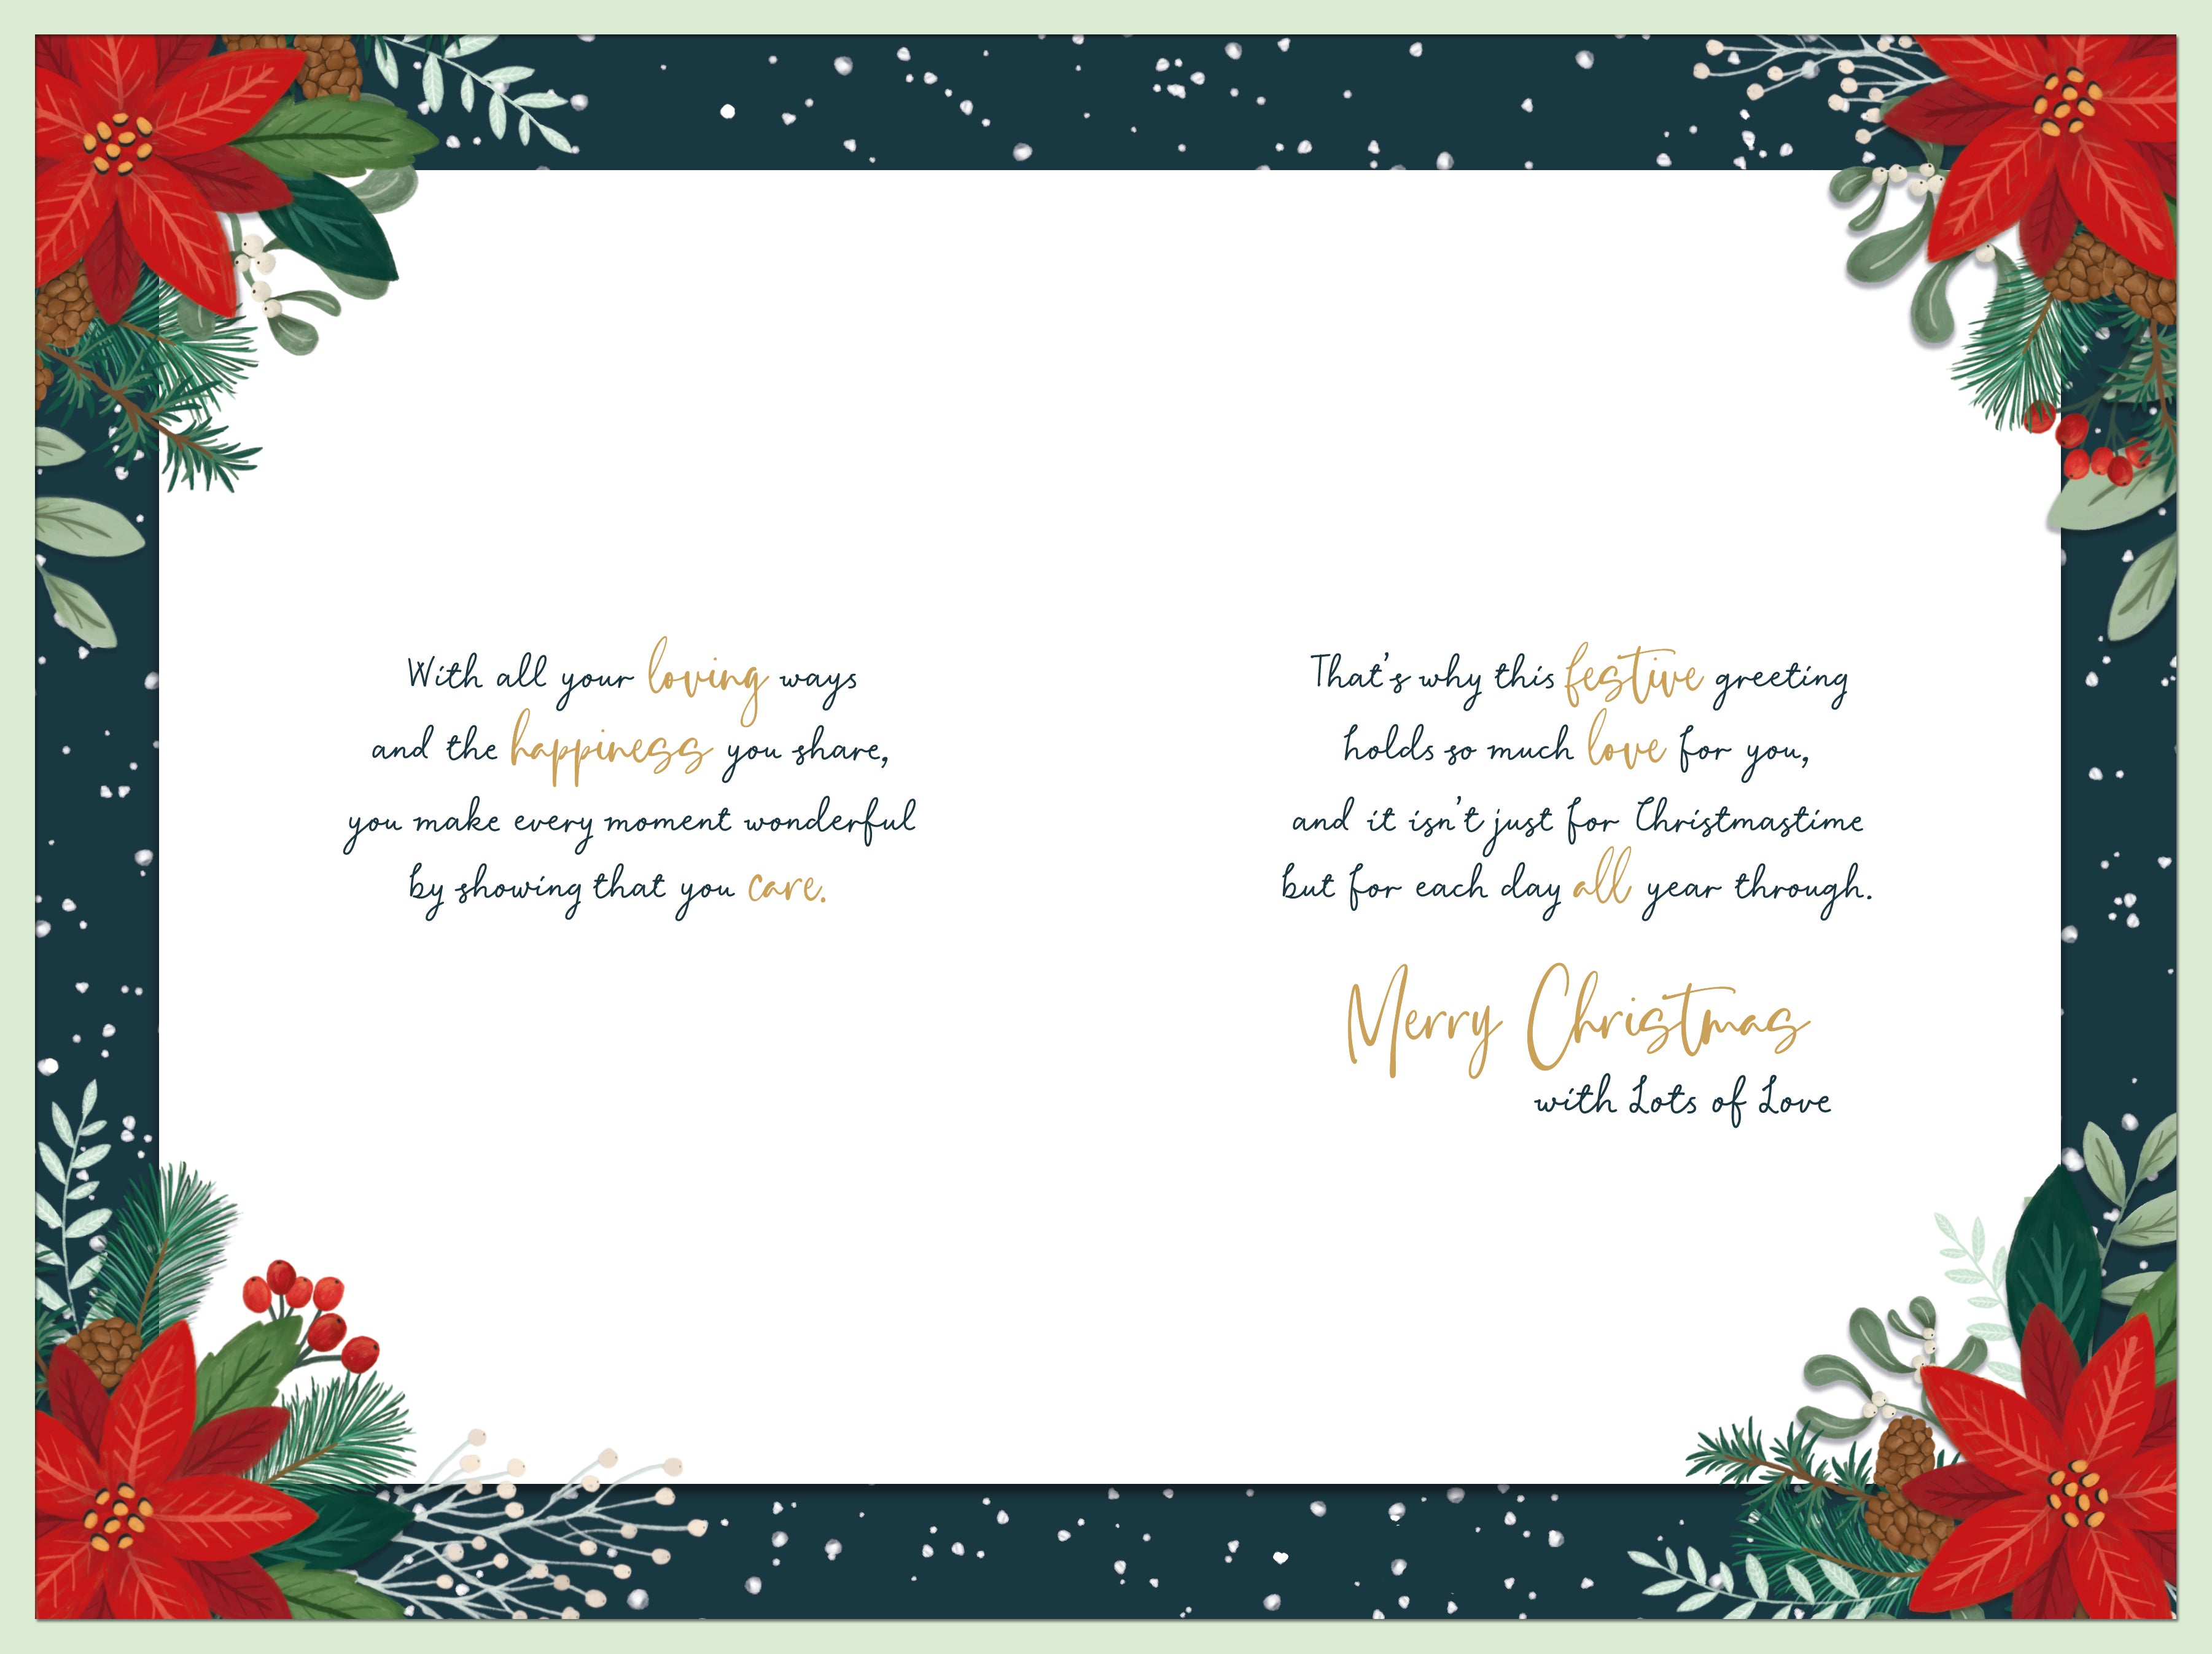 With all your loving ways
and the happiness you share,
you make every moment wonderful
by showing that you care.
That's why this festive greeting
holds so much love for you,
and it isn't just for Christmastime
but for each day all year through.
Merry Christmas
with Lots of Love